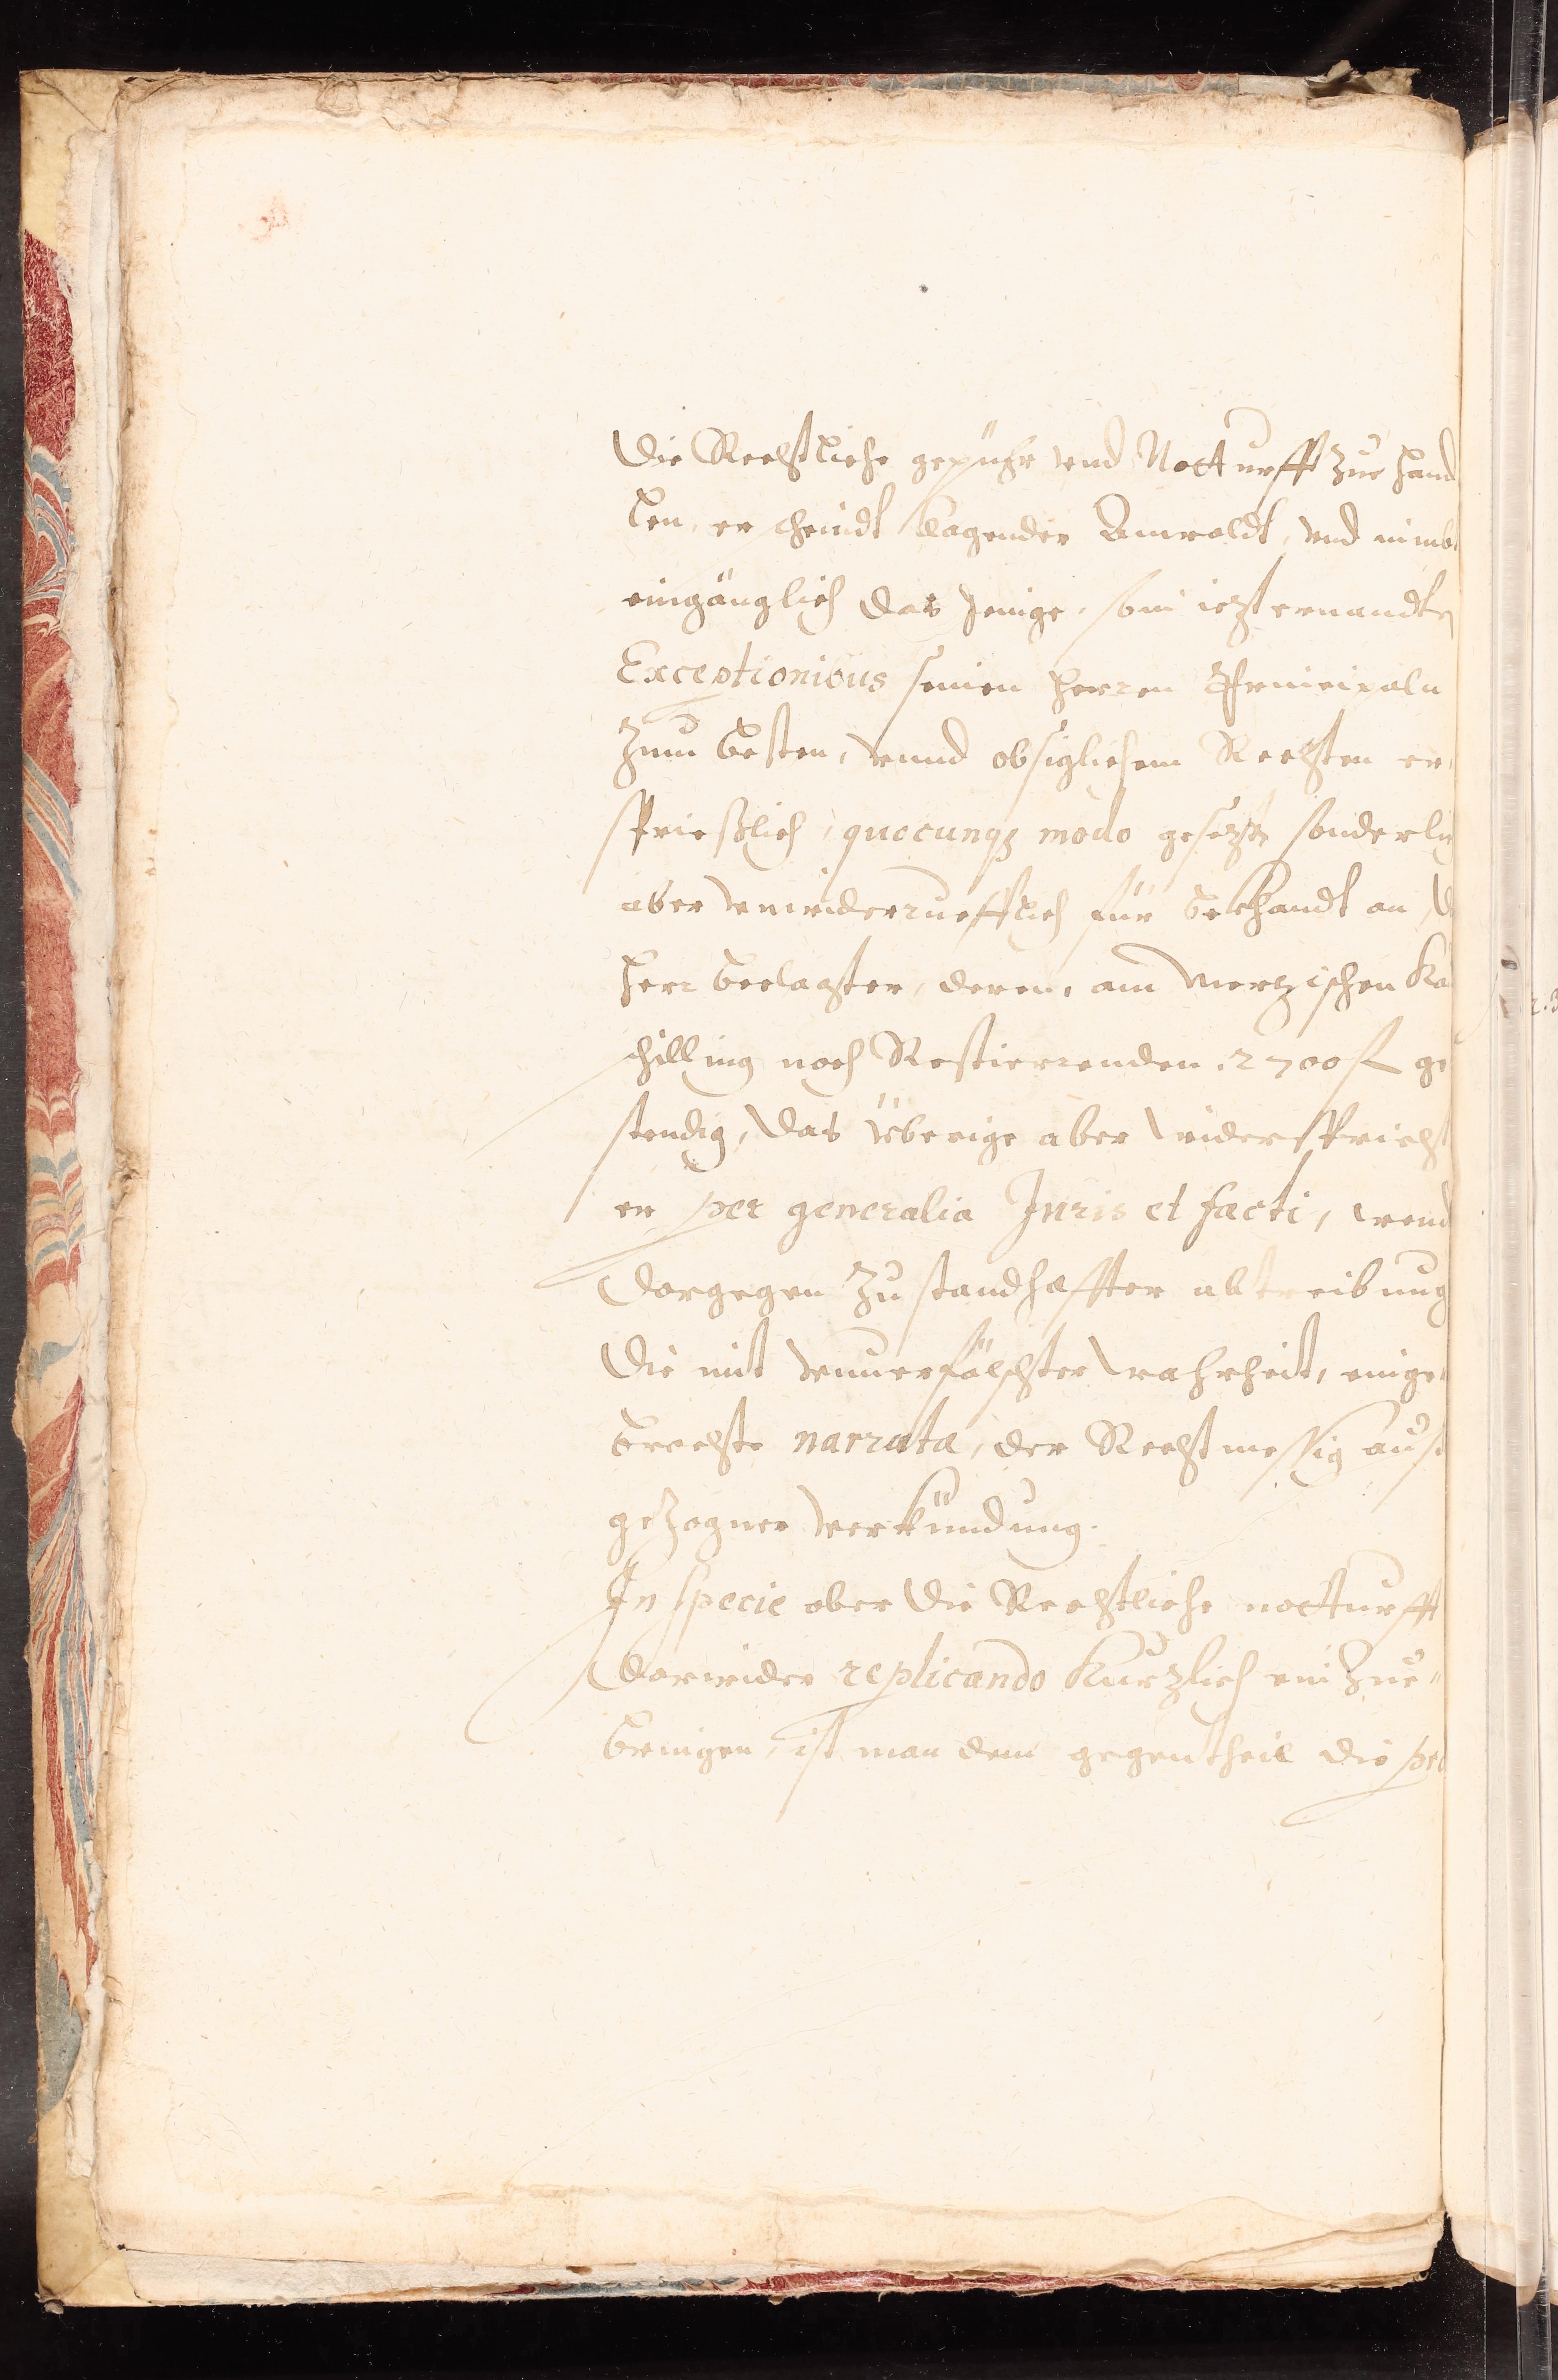 Die Rechtliche gepühr vnd Notturfft zue hand
len, erscheindt klagender Anwaldt, vnd nimbt
eingänglich das Jenige, so in iezt ernandten
Exceptionibus seinen herren Principaln
zum besten, vnnd obsiglichem Rechten er,
sprießlich, quocunqz modo gesezt, sonderlich
aber vnwiderruefflich für bekhandt an, d
herr beclagter, deren, am Merzischen Ka
schilling noch Restierrenden 2700 fl ge
stendig, das vberige aber widerspricht
er per generalia Juris et facti, vnnd
dargegen zu standhaffter abtreibung
die mit vnuerfälschter wahrheit, einge,
brachte narrata, der Rechtmessig auß
gezogner verkündung.
In specie aber die Rechtliche notturfft
darwider replicando kürzlich ein zue-
bringen, ist man dem gegentheil die